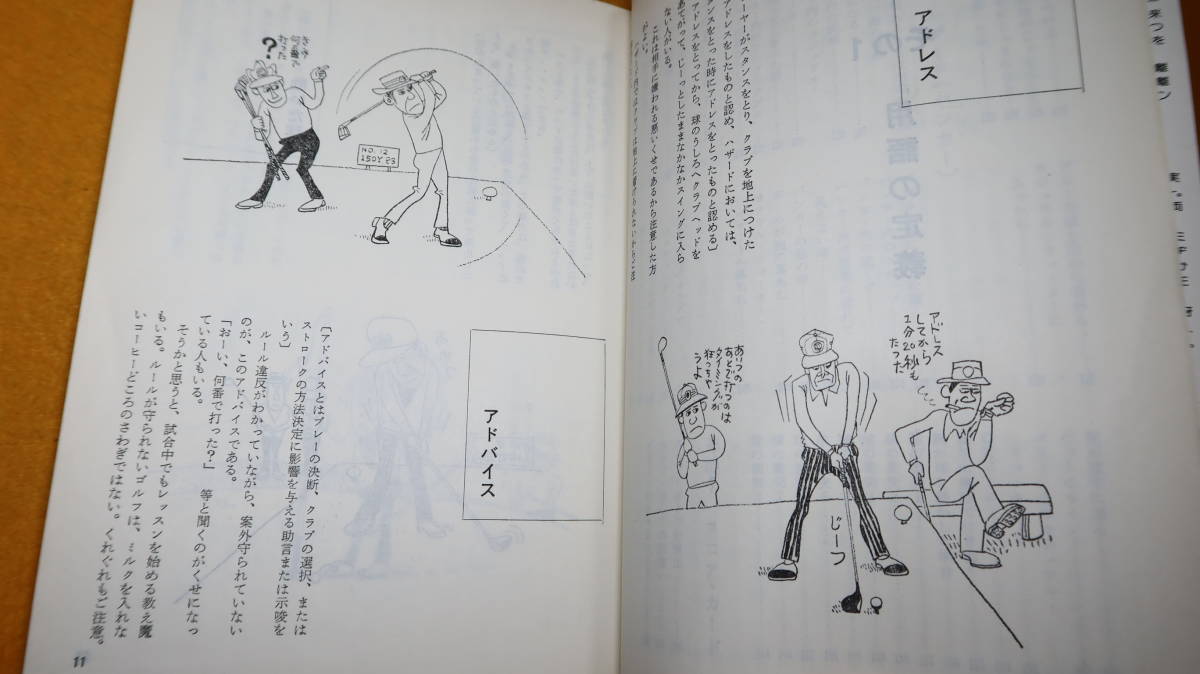 アドレス
ーヤーがスタンスをとり、クラブを地上につけた
アドレスをしたものと認め、ハザードにおいては、
タンスをとった時にアドレスをとったものと認める〕
アドレスをとってから、球のうしろへクラブヘッドを
あてがって、じーっとしたままなかなかスイングに入ら
ない人がいる。
これは相手に嫌われる悪いくせであるから注意した方
がよい。
アドレス
してから
1分20秒も
たった
じーつ
あいつの
あとで打つのは
タイミングが
狂っちゃ
うよ
?
NO. 12
150Y P3
アドバイス
〔アドバイスとはプレーの決断、クラブの選択、または
ストロークの方法決定に影響を与える助言または示唆を
いう〕
ルール違反がわかっていながら、案外守られていない
のが、このアドバイスである。
「おーい、何番で打った?」 等と聞くのがくせになっ
ている人もいる。
そうかと思うと、試合中でもレッスンを始める教え魔
もいる。ルールが守られないゴルフは、ミルクを入れな
いコーヒーどころのさわぎではない。くれぐれもご注意。
11